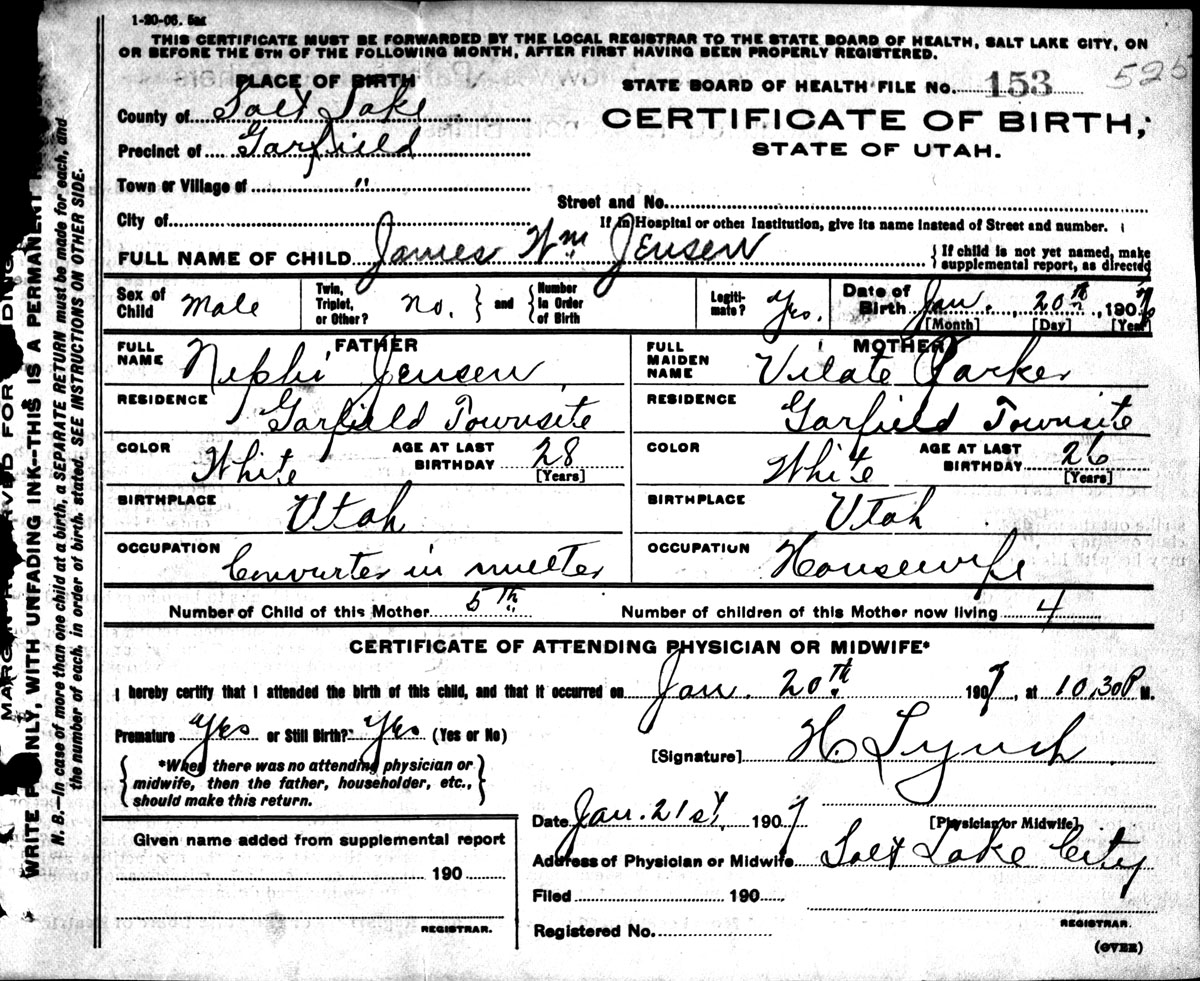 1-20-06. 5m
THIS CERTIFICATE MUST BE FORWARDED BY THE LOCAL REGISTRAR TO THE STATE BOARD OF HEALTH, SALT LAKE CITY, ON
OR BEFORE THE 5TH OF THE FOLLOWING MONTH, AFTER FIRST HAVING BEEN PROPERLY REGISTERED.
PLACE OF BIRTH
STATE BOARD OF HEALTH FILE NO. 153 525
County of Salt Lake
CERTIFICATE OF BIRTH,
Precinct of Garfield
STATE OF UTAH.
Town or Village of "
Street and No.
City of
If in Hospital or other Institution, give its name instead of Street and number.
FULL NAME OF CHILD James Wm Jensen
If child is not yet named, make
supplemental report, as directed
Sex of Child Male
Twin, Triplet, or Other? No. and Number in Order of Birth
Legitimate? Yes.
Date of Birth Jan. 20th, 1907
[Month] [Day] [Year]
FATHER
FULL NAME Nephi Jensen
RESIDENCE Garfield Townsite
COLOR White AGE AT LAST BIRTHDAY 28
[Years]
BIRTHPLACE Utah
OCCUPATION Converter in smelter
MOTHER
FULL MAIDEN NAME Vilate Parker
RESIDENCE Garfield Townsite
COLOR White AGE AT LAST BIRTHDAY 26
[Years]
BIRTHPLACE Utah
OCCUPATION Housewife
Number of Child of this Mother 5th Number of children of this Mother now living 4
CERTIFICATE OF ATTENDING PHYSICIAN OR MIDWIFE*
I hereby certify that I attended the birth of this child, and that it occurred on Jan. 20th 1907, at 10.30 P M.
Premature Yes or Still Birth? Yes (Yes or No)
[Signature] H. Lynch
*When there was no attending physician or
midwife, then the father, householder, etc.,
should make this return.
Date Jan. 21st, 1907
[Physician or Midwife]
Address of Physician or Midwife Salt Lake City
Given name added from supplemental report
190
REGISTRAR.
Filed 190
Registered No.
REGISTRAR.
(OVER)
WRITE PLAINLY, WITH UNFADING INK--THIS IS A PERMANENT
N. B.--In case of more than one child at a birth, a SEPARATE RETURN must be made for each, and
the number of each, in order of birth, stated. SEE INSTRUCTIONS ON OTHER SIDE.